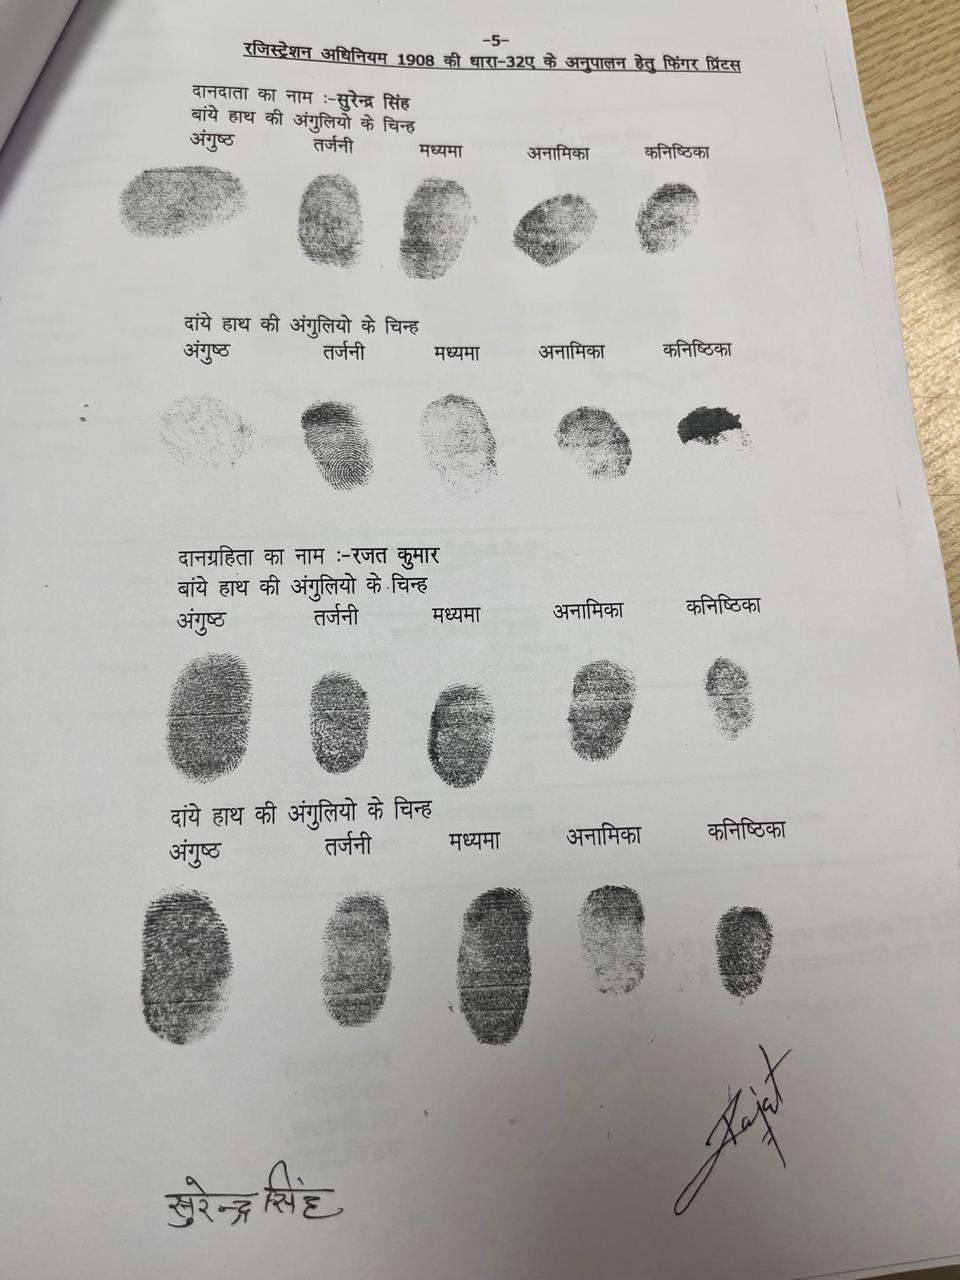 -5-
रजिस्ट्रेशन अधिनियम 1908 की धारा-32ए के अनुपालन हेतु फिंगर प्रिंटस
दानदाता का नाम :-सुरेन्द्र सिंह
बांये हाथ की अंगुलियो के चिन्ह
अंगुष्ठ तर्जनी मध्यमा अनामिका कनिष्ठिका
दांये हाथ की अंगुलियो के चिन्ह
अंगुष्ठ तर्जनी मध्यमा अनामिका कनिष्ठिका
दानग्रहिता का नाम :-रजत कुमार
बांये हाथ की अंगुलियो के चिन्ह
अंगुष्ठ तर्जनी मध्यमा अनामिका कनिष्ठिका
दांये हाथ की अंगुलियो के चिन्ह
अंगुष्ठ तर्जनी मध्यमा अनामिका कनिष्ठिका
Rajat
सुरेन्द्र सिंह